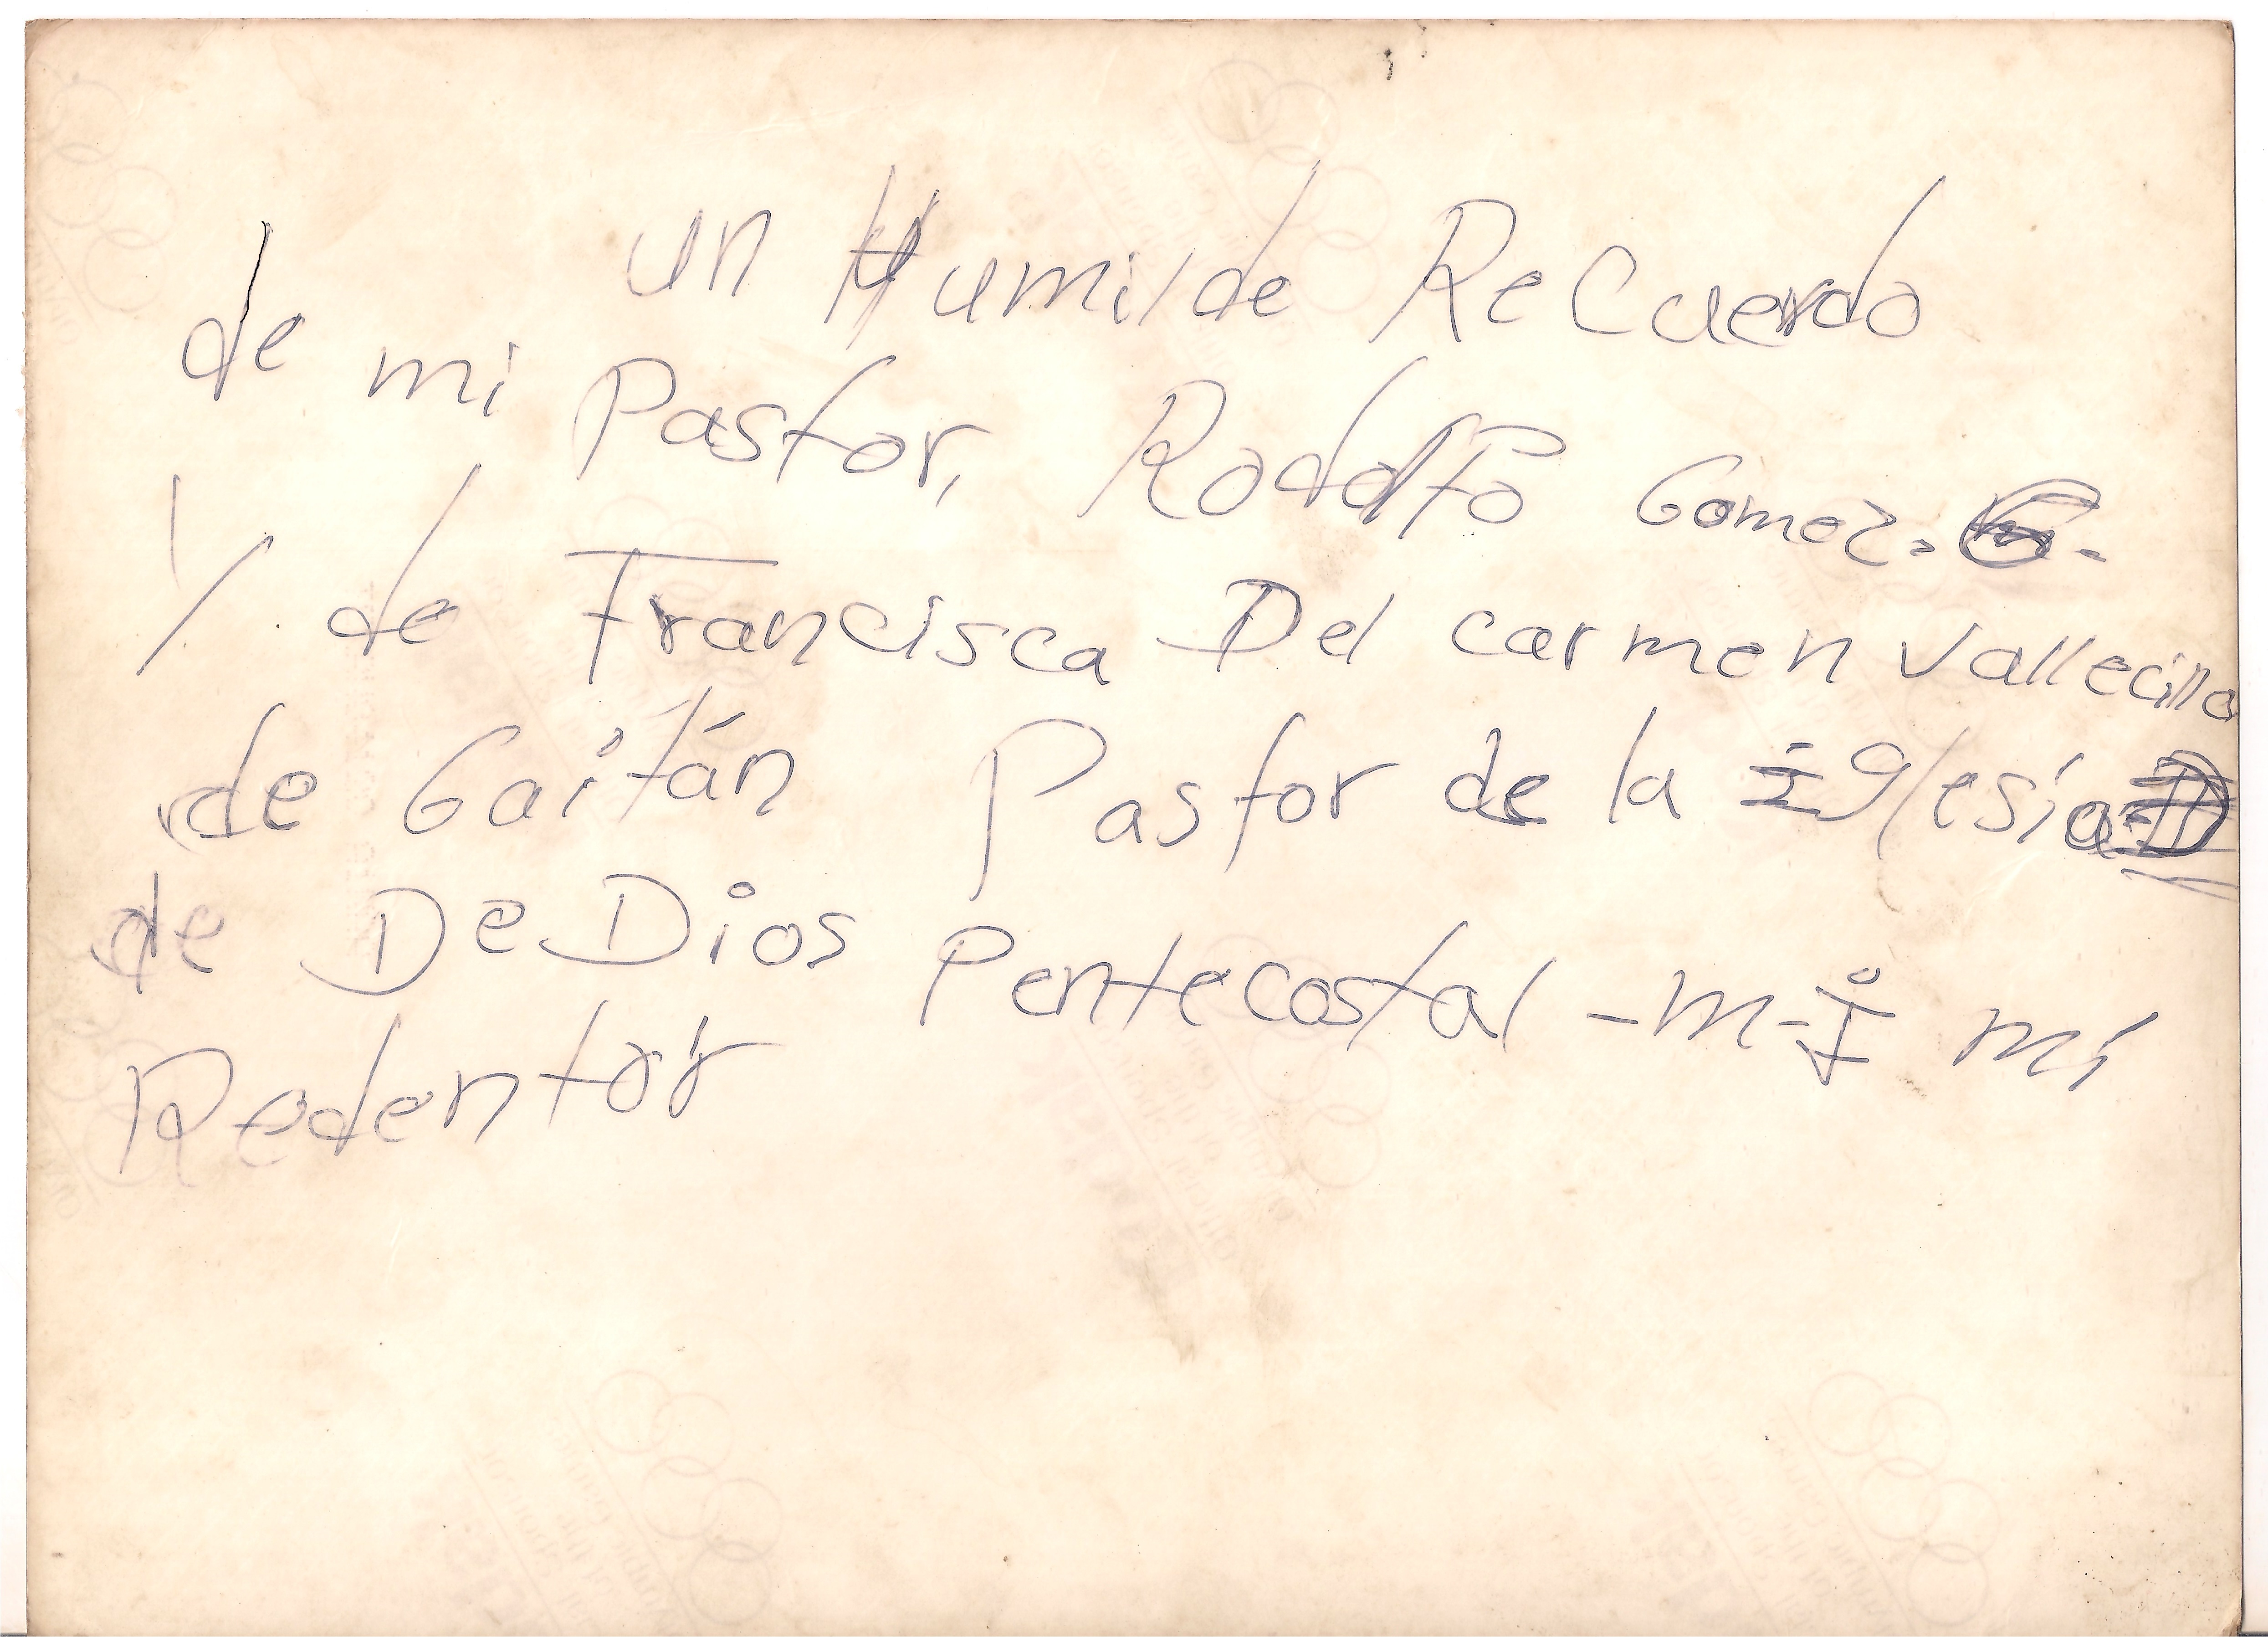 un Humilde ReCuerdo
de mi Pastor, Rodolfo Gomez.
Y de Francisca Del carmen Vallecillo
de Gaitán Pastor de la iglesia
de De Dios Pentecostal - M-I mi
Redentor